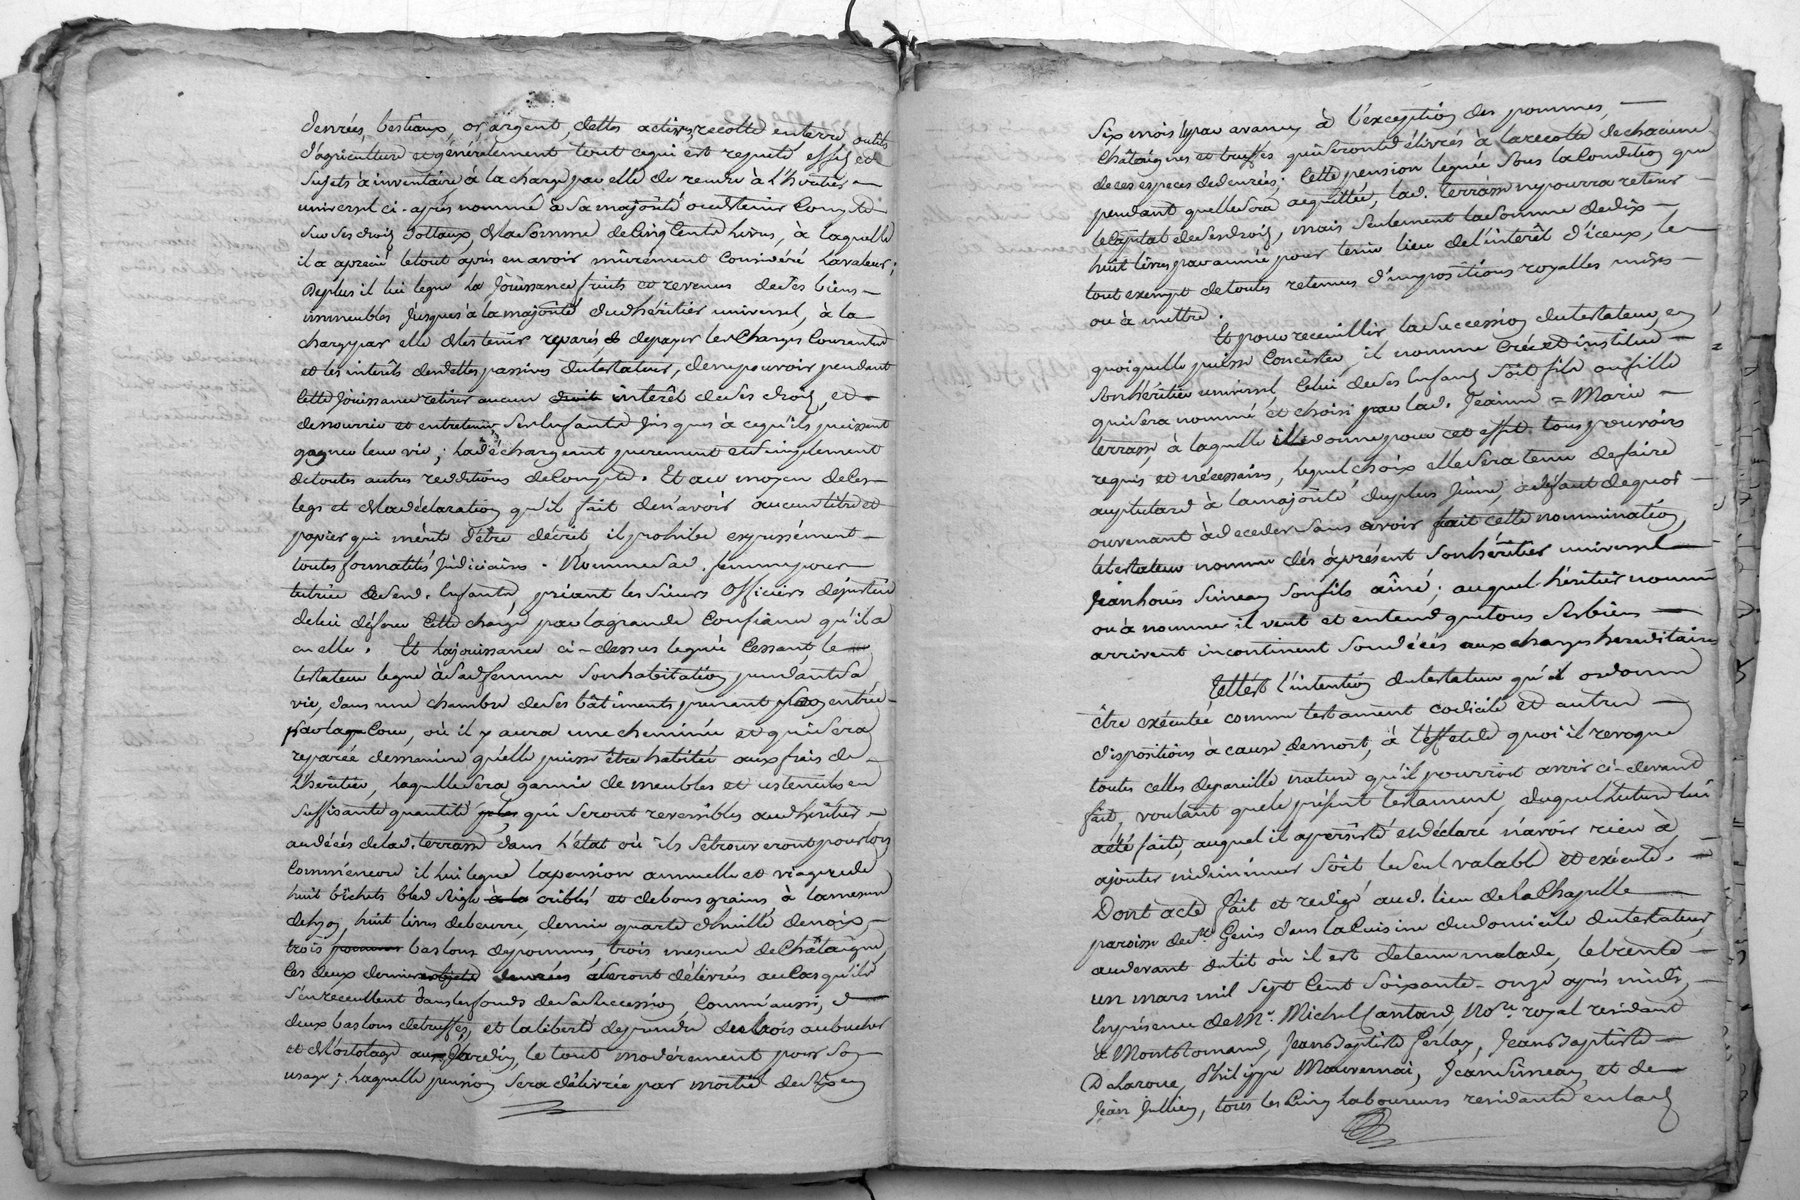 denrées, bestiaux, or, argent, dettes actives, recolte enterre outils
d'agriculture et généralement tout cequi est reputé effet et
sujets à inventaire, à la charge par elle de rendre à L'héritier —
universel ci-après nommé à sa majorité ou de tenir Compte
sur ses droits dottaux, de la somme de Cinq Cents livres, à laquelle
il a aprecié letout après en avoir mûrement Considéré la valeur;
Deplus il lui legue la Jöuissance fruits et revenus de ses biens —
immeubles Jusques à la majorité dud héritier universel, à la
charge par elle de les tenir reparés, de depayer les Charges Courantes
et les interêts des dettes passives du testateur, de ne pouvoir pendant
Cette Jöuissance retirer aucun droit interêt de ses droits, et —
de nourrir et entretenir, ses Enfants Jusques à cequ'ils puissent
gagner leur vie; la déchargeant purement et simplement
de toutes autres redditions de Compte. Et au moyen de Ces —
legs et de la déclaration qu'il fait de n'avoir aucun titre et
papier qui mérite d'être décrit, il prohibe expressément —
toutes formalités Judiciaires. Nomme sad. femme pour
tutrice de send. Enfants, priant les sieurs Officiers de Justice
de lui déférer Cette charge par la grande Confiance qu'il a
en elle. Et la jouissance ci-dessus leguée Cessant, le
testateur legue à sad femme son habitation pendant sa
vie, dans une chambre de ses bâtiments prenant son entrée —
par la Cour, où il y aura une cheminée et qui sera
reparée de maniere qu'elle puisse être habitée aux frais de —
L'héritier, laquelle sera garnie de meubles et ustenciles en
suffisante quantité qui seront reversibles aud héritier —
au décés de lad. terrasse dans L'état où ils se trouveront pour lors
Comme encore il lui legue la pension annuelle et viagere de
huit bichets bled seigle à la criblé et de bons grains, à la mesure
de huit livres de beurre, demie quarte d'huille de noix, —
trois pommes baslous de pommes, trois mesures de Châtaignes,
Ces deux dernieres objets denrées seront délivrés au Cas qu'il
s'en recueillent dans les fonds de sa succession Comm'aussi,
deux baslous de truffes, et la liberté de prendre du bois au bucher
et de l'ortolage aux Jardin, le tout modérement pour son
usage; Laquelle pension sera délivrée par moitié de six en
six mois par avance, à l'exception des pommes, —
Châtaignes et truffes qui seront délivrés à la recolte de chacune
de ces especes de denrées; Cette pension leguée sous la Condition que
pendant quelle sera acquittée, lad. terrasse ne pourra retirer —
le Capital de ses droits, mais seulement la somme de dix —
huit livres par année pour tenir lieu de l'intérêt d'iceux, le
tout exempt de toutes retenues d'impositions royalles mises —
ou à mettre.
Et pour recueillir la succession du testateur, en
quoi quelle puisse Concister, il nomme Crée et institue —
son héritier universel, Celui de ses Enfants soit fils ou fille
qui sera nommé et choisi par lad. Jeanne = Marie —
terrasse, à laquelle il donne pour cet effet tous pouvoirs
requis et nécessaires, lequel choix elle sera tenue de faire
au plutard à la majorité du plus Jeune, à défaut de quoi —
ou venant à deceder sans avoir fait cette nommination,
le testateur nomme dés àprésent son héritier universel —
Jean Louis Simean son fils aîné; auquel héritier nommé
ou à nommer il veut et entend que tous ses biens —
arrivent incontinent son décés aux charges hereditaires
Tell'est l'intention du testateur qu'il ordonne
être exécutée comme testament codicile et autres —
dispositions à cause de mort, à l'effet de quoi il revoque
toutes celles de pareille nature qu'il pourroit avoir ci-devant
fait, voulant que le présent testament, duquel lecture lui
a été faite, auquel il a persisté et déclaré n'avoir rien à
ajouter ni diminuer soit le seul valable et exécuté. —
Dont acte fait et redigé aud. lieu de la Chapelle —
paroisse de St. Genis dans la Cuisine du domicile du testateur,
au devant du lit où il est detenu malade, le trente —
un mars mil sept Cent soixante-onze après midi, —
En présence de Mr. Michel Santard, Nore. royal residant
à Montrotomand, Jean Baptiste Gerlay, Jean Baptiste —
Delaroue, Philippe Mauvernai, Jean Simean, et de
Jean Jullien, tous les Cinq laboureurs residants en lad